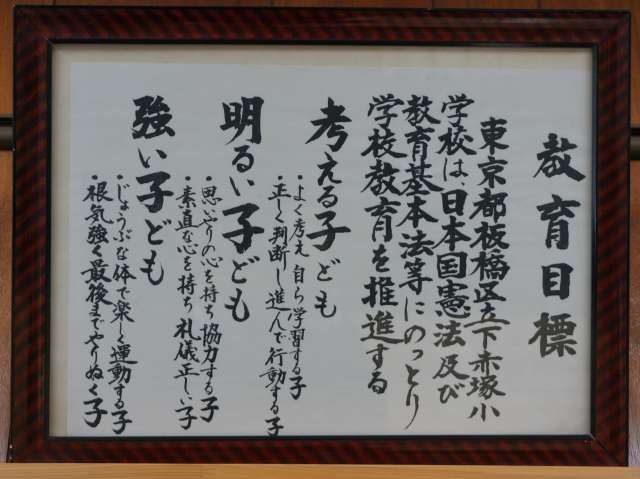 教育目標
東京都板橋区立下赤塚小
学校は、日本国憲法及び
教育基本法等にのっとり
学校教育を推進する
考える子ども
・よく考え自ら学習する子
・正しく判断し進んで行動する子
明るい子ども
・思いやりの心を持ち協力する子
・素直な心を持ち礼儀正しい子
強い子ども
・じょうぶな体で楽しく運動する子
・根気強く最後までやりぬく子